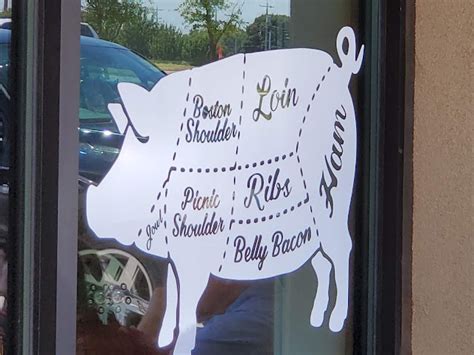 Boston
Shoulder
Loin
Ham
Jowl
Picnic
Shoulder
Ribs
Belly Bacon